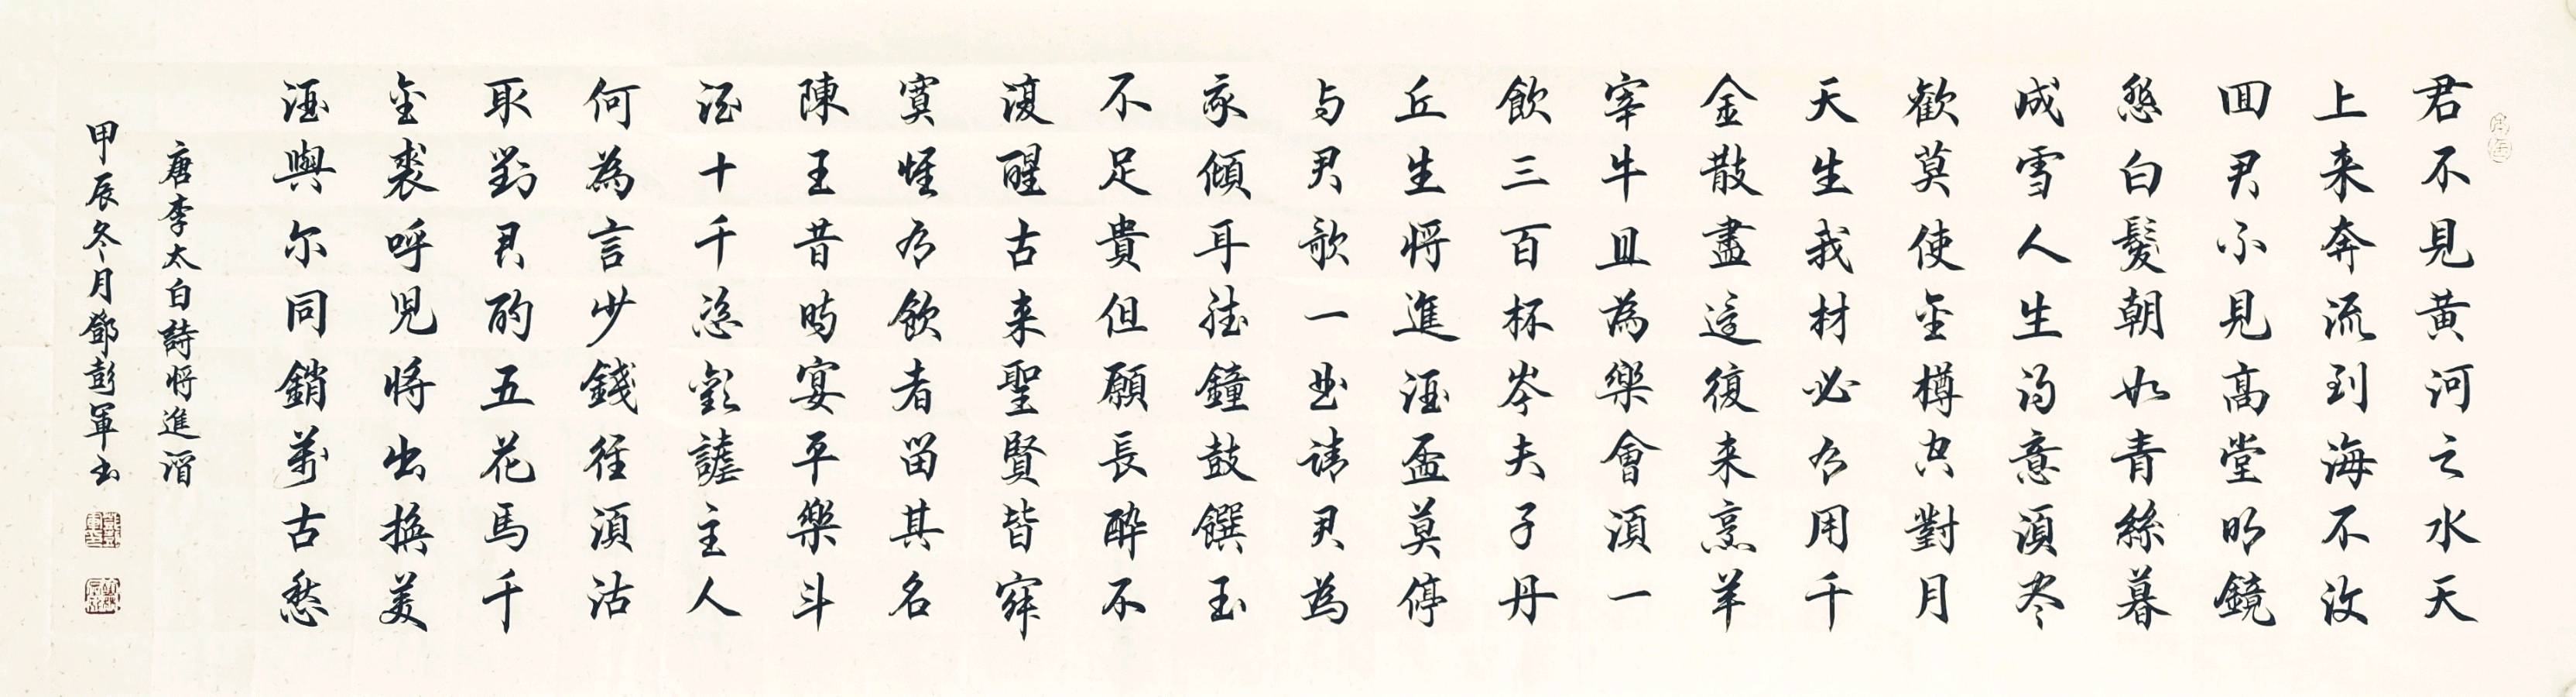 君不見黄河之水天
上来奔流到海不復
回君不見高堂明鏡
悲白髮朝如青絲暮
成雪人生得意須盡
歡莫使金樽空對月
天生我材必有用千
金散盡還復来烹羊
宰牛且為樂會須一
飲三百杯岑夫子丹
丘生將進酒盃莫停
与君歌一曲請君為
我傾耳聽鐘鼓饌玉
不足貴但願長醉不
復醒古来聖賢皆寂
寞惟有飲者留其名
陳王昔時宴平樂斗
酒十千恣歡謔主人
何為言少錢徑須沽
取對君酌五花馬千
金裘呼兒將出換美
酒與尔同銷萬古愁
唐李太白詩將進酒
甲辰冬月鄧彭軍書